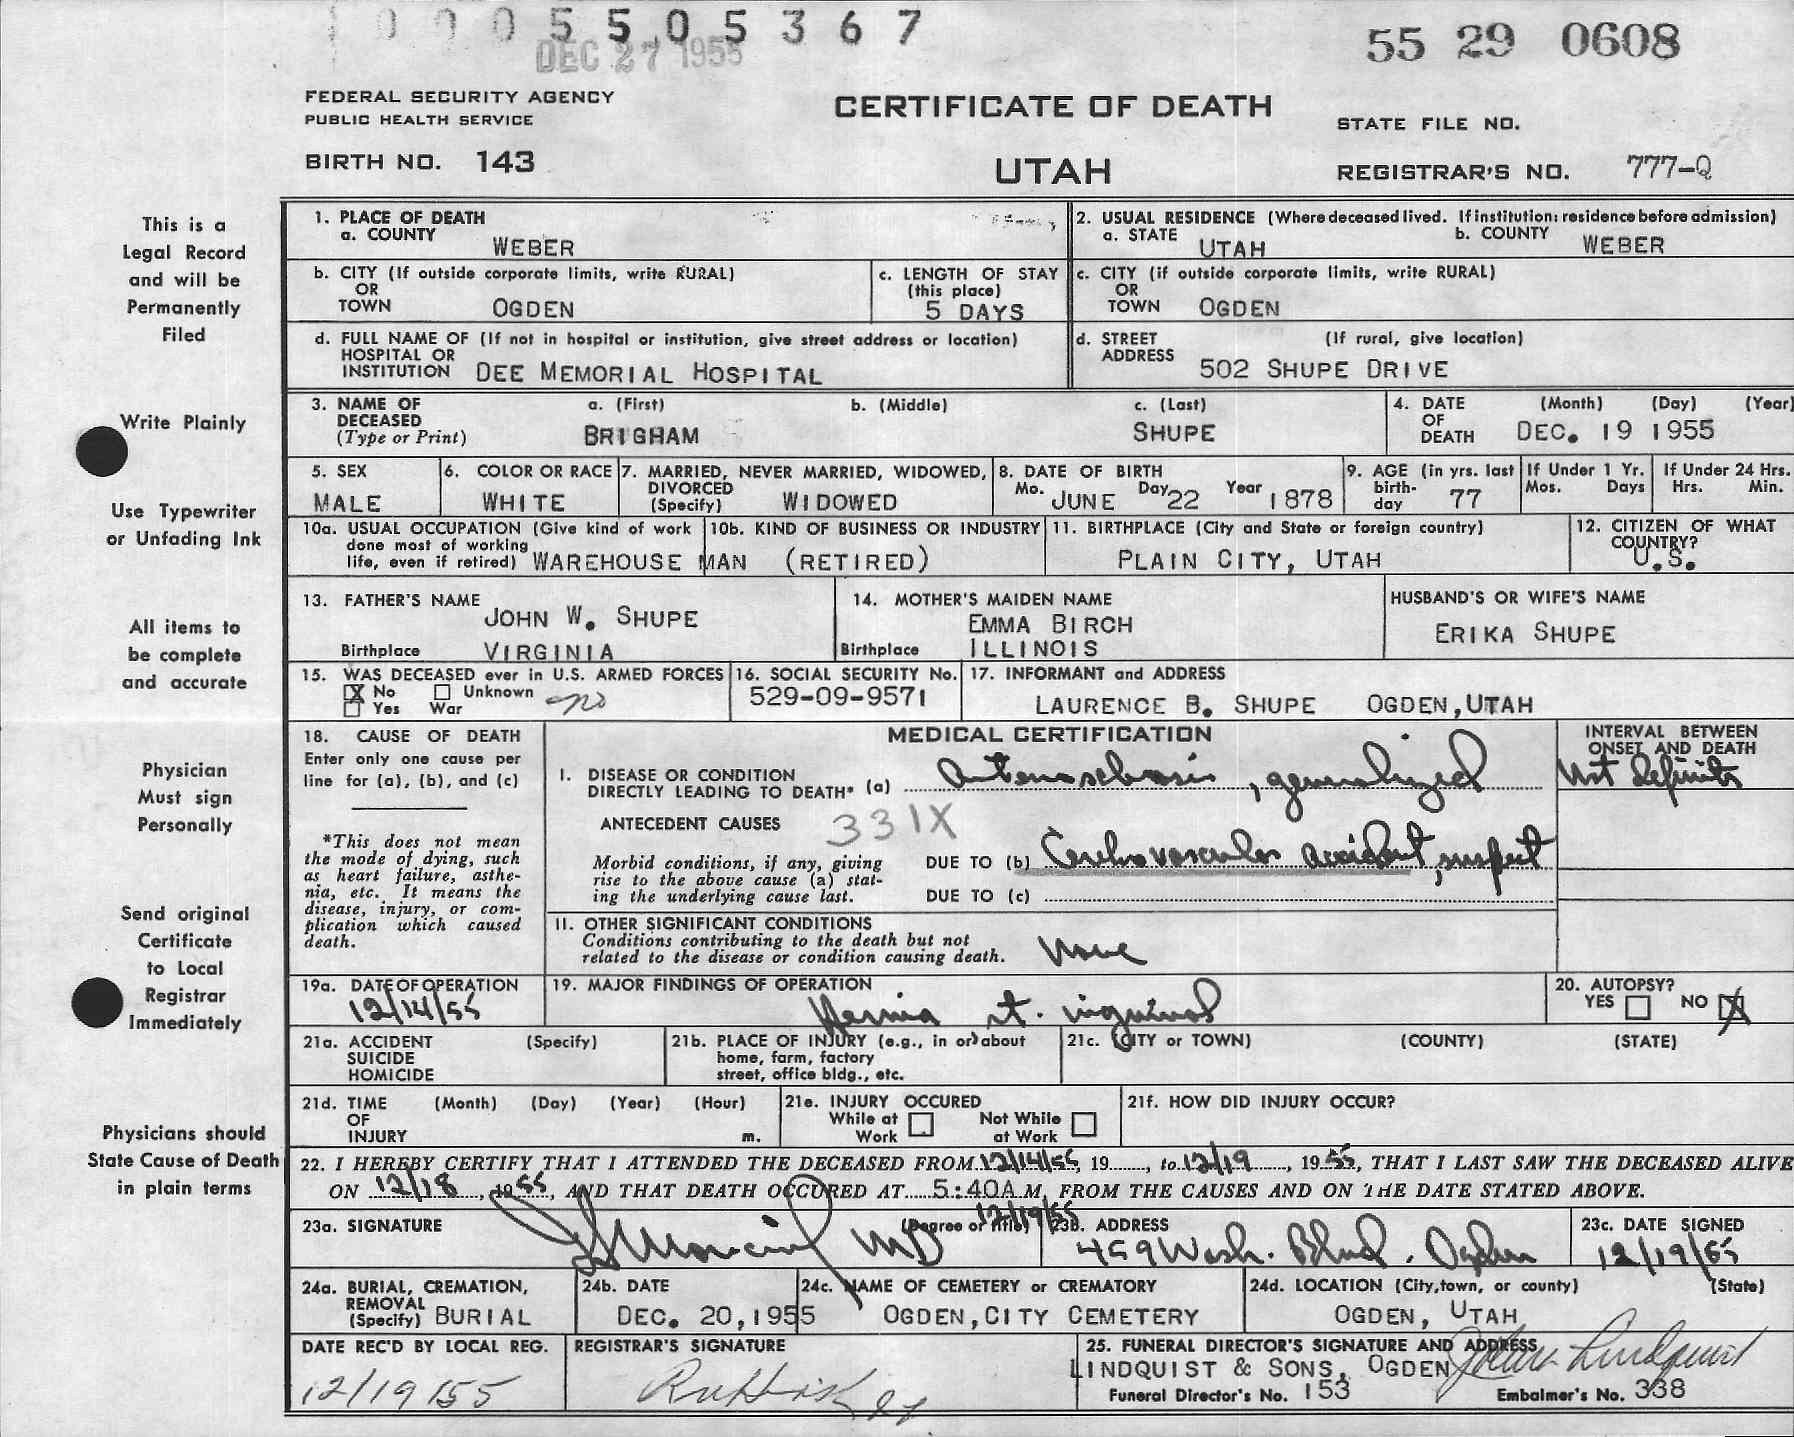 1 0 0 0 5 5 0 5 3 6 7
DEC 27 1955
55 29 0608
FEDERAL SECURITY AGENCY
PUBLIC HEALTH SERVICE
CERTIFICATE OF DEATH
STATE FILE NO.
BIRTH NO. 143
UTAH
REGISTRAR'S NO. 777-Q
This is a
Legal Record
and will be
Permanently
Filed
Write Plainly
Use Typewriter
or Unfading Ink
All items to
be complete
and accurate
Physician
Must sign
Personally
Send original
Certificate
to Local
Registrar
Immediately
Physicians should
State Cause of Death
in plain terms
1. PLACE OF DEATH
a. COUNTY WEBER
2. USUAL RESIDENCE (Where deceased lived. If institution: residence before admission)
a. STATE UTAH b. COUNTY WEBER
b. CITY (If outside corporate limits, write RURAL)
OR
TOWN OGDEN
c. LENGTH OF STAY
(this place)
5 DAYS
c. CITY (if outside corporate limits, write RURAL)
OR
TOWN OGDEN
d. FULL NAME OF (If not in hospital or institution, give street address or location)
HOSPITAL OR
INSTITUTION DEE MEMORIAL HOSPITAL
d. STREET (If rural, give location)
ADDRESS
502 SHUPE DRIVE
3. NAME OF a. (First) b. (Middle) c. (Last)
DECEASED
(Type or Print) BRIGHAM SHUPE
4. DATE (Month) (Day) (Year)
OF
DEATH DEC. 19 1955
5. SEX
MALE
6. COLOR OR RACE
WHITE
7. MARRIED, NEVER MARRIED, WIDOWED,
DIVORCED
(Specify) WIDOWED
8. DATE OF BIRTH
Mo. JUNE Day 22 Year 1878
9. AGE (in yrs. last
birth-
day 77
If Under 1 Yr.
Mos. Days
If Under 24 Hrs.
Hrs. Min.
10a. USUAL OCCUPATION (Give kind of work
done most of working
life, even if retired) WAREHOUSE MAN (RETIRED)
10b. KIND OF BUSINESS OR INDUSTRY
11. BIRTHPLACE (City and State or foreign country)
PLAIN CITY, UTAH
12. CITIZEN OF WHAT
COUNTRY?
U.S.
13. FATHER'S NAME
JOHN W. SHUPE
Birthplace VIRGINIA
14. MOTHER'S MAIDEN NAME
EMMA BIRCH
Birthplace ILLINOIS
HUSBAND'S OR WIFE'S NAME
ERIKA SHUPE
15. WAS DECEASED ever in U.S. ARMED FORCES
X No Unknown no
Yes War
16. SOCIAL SECURITY No.
529-09-9571
17. INFORMANT and ADDRESS
LAURENCE B. SHUPE OGDEN, UTAH
18. CAUSE OF DEATH
Enter only one cause per
line for (a), (b), and (c)
*This does not mean
the mode of dying, such
as heart failure, asthe-
nia, etc. It means the
disease, injury, or com-
plication which caused
death.
MEDICAL CERTIFICATION
INTERVAL BETWEEN
ONSET AND DEATH
I. DISEASE OR CONDITION
DIRECTLY LEADING TO DEATH* (a) Arteriosclerosis, generalized
Not definite
ANTECEDENT CAUSES 331X
Morbid conditions, if any, giving
rise to the above cause (a) stat-
ing the underlying cause last.
DUE TO (b) Cerebrovascular accident, suspect
DUE TO (c)
II. OTHER SIGNIFICANT CONDITIONS
Conditions contributing to the death but not
related to the disease or condition causing death. None
19a. DATE OF OPERATION
12/14/55
19. MAJOR FINDINGS OF OPERATION
Hernia rt. inguinal
20. AUTOPSY?
YES NO X
21a. ACCIDENT (Specify)
SUICIDE
HOMICIDE
21b. PLACE OF INJURY (e.g., in or about
home, farm, factory
street, office bldg., etc.
21c. (CITY or TOWN) (COUNTY) (STATE)
21d. TIME (Month) (Day) (Year) (Hour)
OF
INJURY m.
21e. INJURY OCCURED
While at Not While
Work at Work
21f. HOW DID INJURY OCCUR?
22. I HEREBY CERTIFY THAT I ATTENDED THE DECEASED FROM 12/14/55, 19......, to 12/19, 1955, THAT I LAST SAW THE DECEASED ALIVE
ON 12/18, 1955, AND THAT DEATH OCCURED AT 5:40A M, FROM THE CAUSES AND ON THE DATE STATED ABOVE.
12/19/55
23a. SIGNATURE (Degree or title)
MD
23b. ADDRESS
459 Wash. Blvd. Ogden
23c. DATE SIGNED
12/19/55
24a. BURIAL, CREMATION,
REMOVAL
(Specify) BURIAL
24b. DATE
DEC. 20, 1955
24c. NAME OF CEMETERY or CREMATORY
OGDEN, CITY CEMETERY
24d. LOCATION (City, town, or county) (State)
OGDEN, UTAH
DATE REC'D BY LOCAL REG.
12/19/55
REGISTRAR'S SIGNATURE
25. FUNERAL DIRECTOR'S SIGNATURE AND ADDRESS
LINDQUIST & SONS, OGDEN Lindquist
Funeral Director's No. 153 Embalmer's No. 338